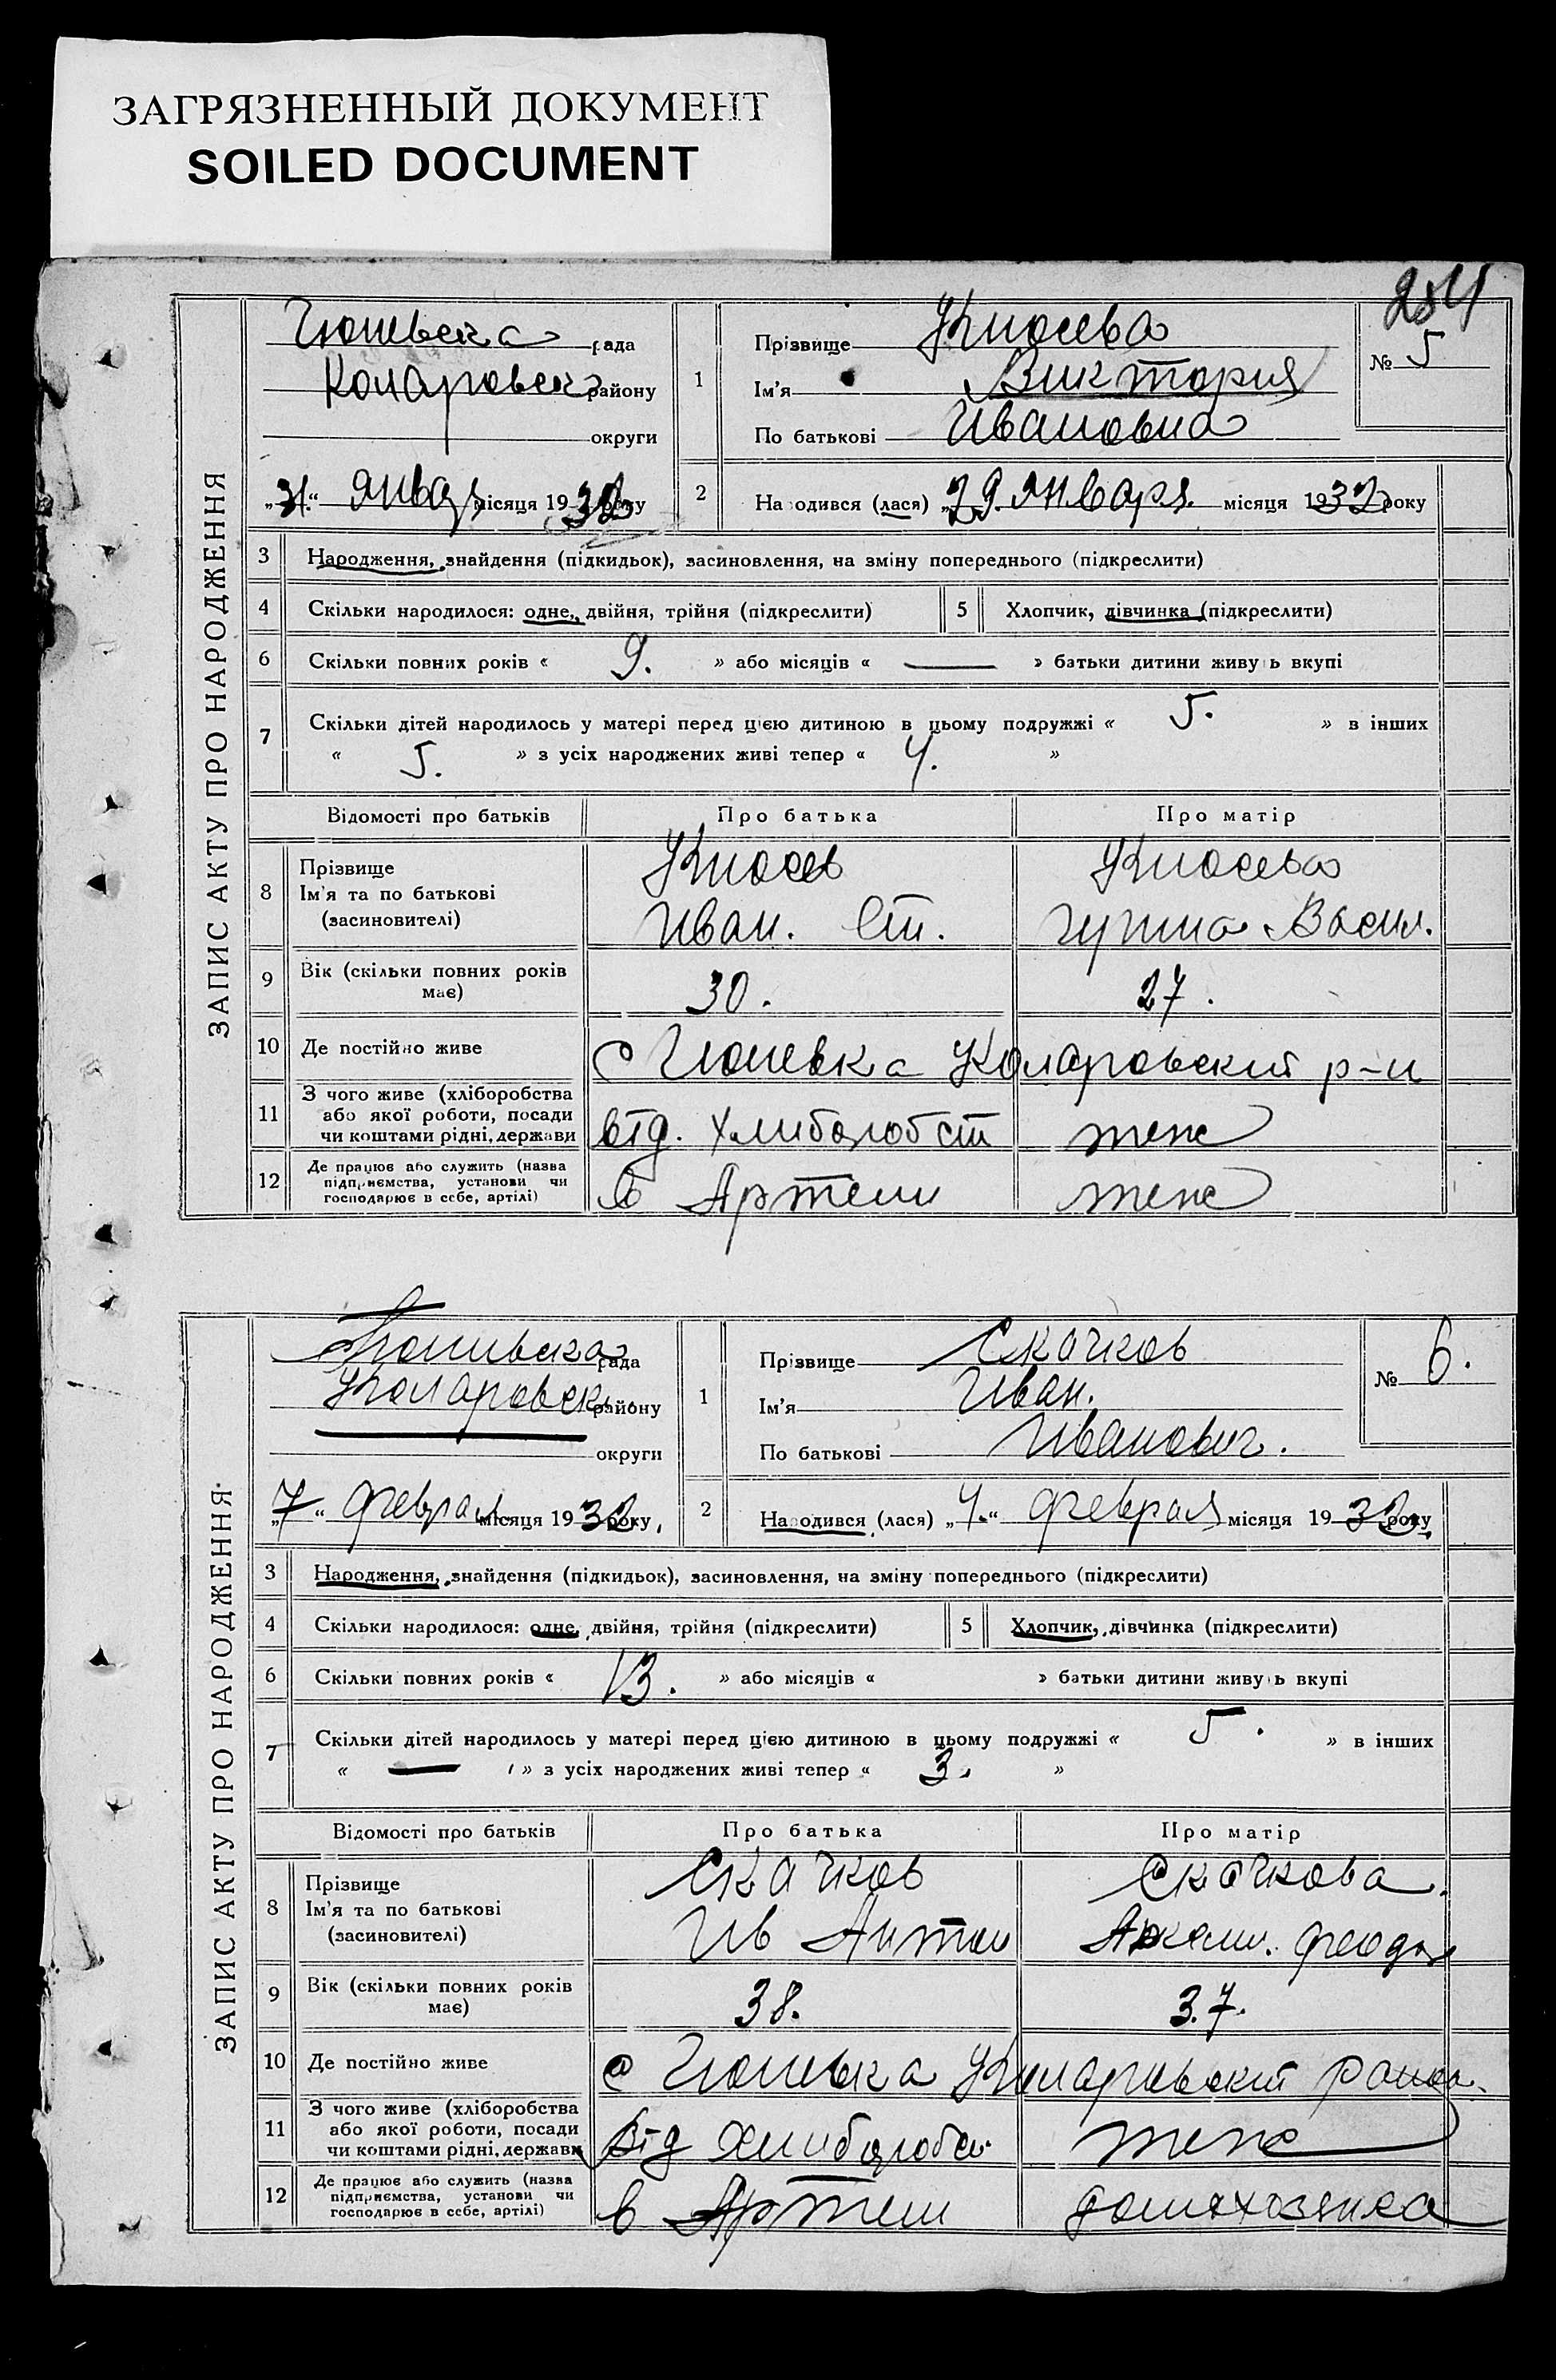 ЗАГРЯЗНЕННЫЙ ДОКУМЕНТ
SOILED DOCUMENT
284
ЗАПИС АКТУ ПРО НАРОДЖЕННЯ
Гюневска рада
Коларовск району
округи
„31.“ январ місяця 1932 року
1
Прізвище Киосева
Ім'я Виктория
По батькові Ивановна
№ 5
2 Народився (лася) „29. января. місяця 1932 року
3 Народження, знайдення (підкидьок), засиновлення, на зміну попереднього (підкреслити)
4 Скільки народилося: одне, двійня, трійня (підкреслити) 5 Хлопчик, дівчинка (підкреслити)
6 Скільки повних років « 9. » або місяців « — » батьки дитини живуть вкупі
7 Скільки дітей народилось у матері перед цією дитиною в цьому подружжі « 5. » в інших
« 5. » з усіх народжених живі тепер « 4. »
Відомості про батьків Про батька Про матір
8 Прізвище
Ім'я та по батькові
(засиновителі)
Киосев Киосева
Иван. Ст. Васил.
9 Вік (скільки повних років має) 30. 27.
10 Де постійно живе с Гюневка Коларовский р-н
11 З чого живе (хліборобства
або якої роботи, посади
чи коштами рідні, держави
від. хлиборобст жена
12 Де працює або служить (назва
підприємства, установи чи
господарює в себе, артілі)
в Артели жена
ЗАПИС АКТУ ПРО НАРОДЖЕННЯ
Гюневска рада
Коларовск. району
округи
„7“ февраля місяця 1932 року,
1
Прізвище Скачков
Ім'я Иван.
По батькові Иванович.
№ 6.
2 Народився (лася) „4.“ февраля місяця 1932 року
3 Народження, знайдення (підкидьок), засиновлення, на зміну попереднього (підкреслити)
4 Скільки народилося: одне, двійня, трійня (підкреслити) 5 Хлопчик, дівчинка (підкреслити)
6 Скільки повних років « 13. » або місяців « » батьки дитини живуть вкупі
7 Скільки дітей народилось у матері перед цією дитиною в цьому подружжі « 5. » в інших
« — » з усіх народжених живі тепер « 3. »
Відомості про батьків Про батька Про матір
8 Прізвище
Ім'я та по батькові
(засиновителі)
Скачков Скачкова.
Ив Антон Феодо
9 Вік (скільки повних років має) 38. 37.
10 Де постійно живе с Гюневка Коларовский района
11 З чого живе (хліборобства
або якої роботи, посади
чи коштами рідні, держави
від хлиборобст жена
12 Де працює або служить (назва
підприємства, установи чи
господарює в себе, артілі)
в Артели домохозяйка